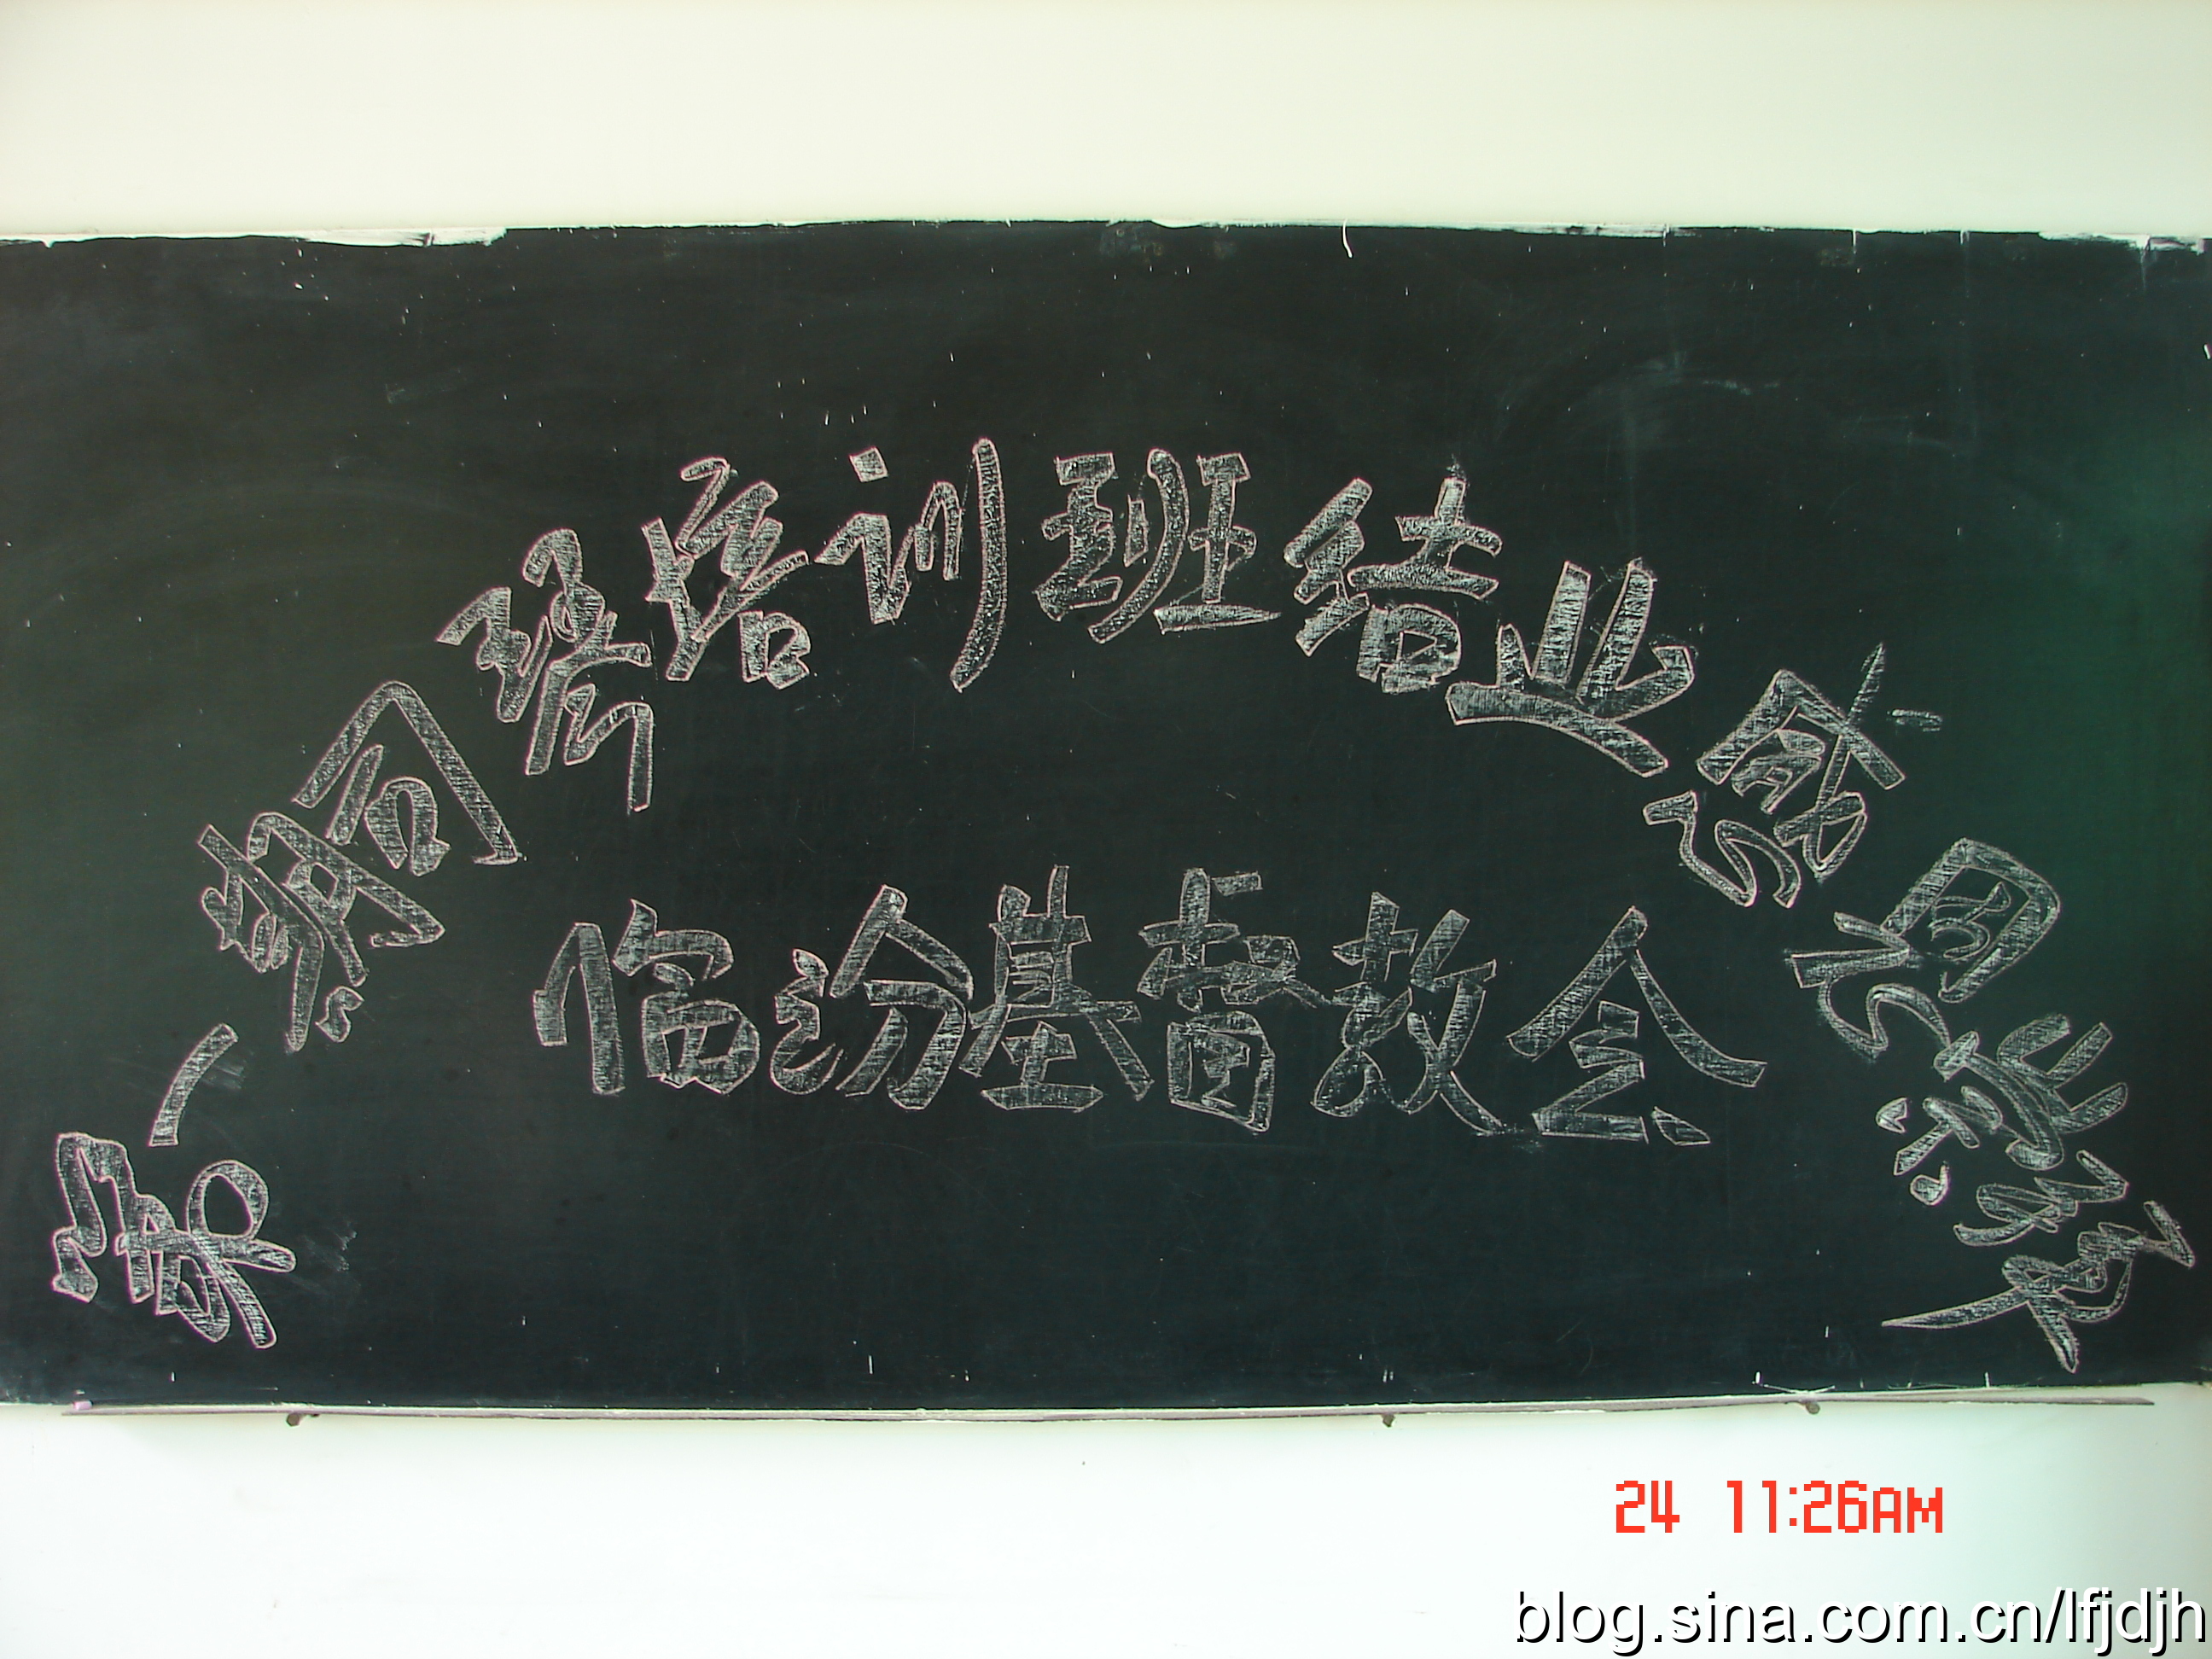 第一期司琴培训班结业感恩礼拜
临汾基督教会
24 11:26AM
blog.sina.com.cn/lfjdjh